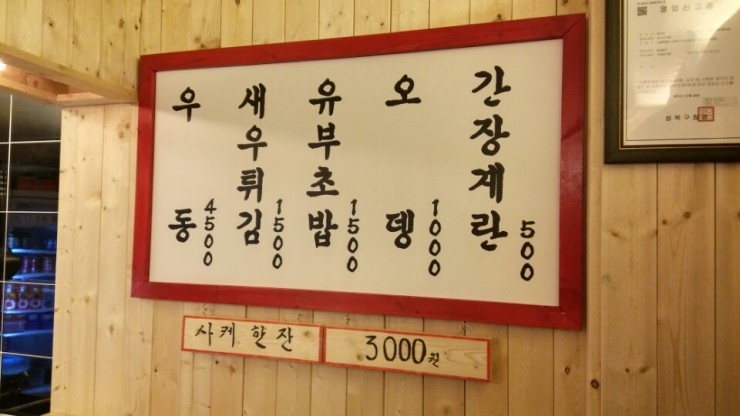 우동 4500
새우튀김 1500
유부초밥 1500
오뎅 1000
간장계란 500
사케 한잔 3000원
영업신고증
성북구청장